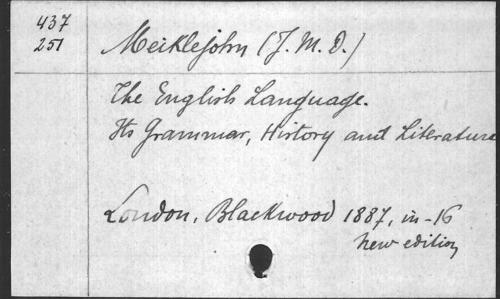 437
251
Meiklejohn (J. M. D.)
The English Language.
Its Grammar, History and Literature
London, Blackwood 1887, in-16
New edition